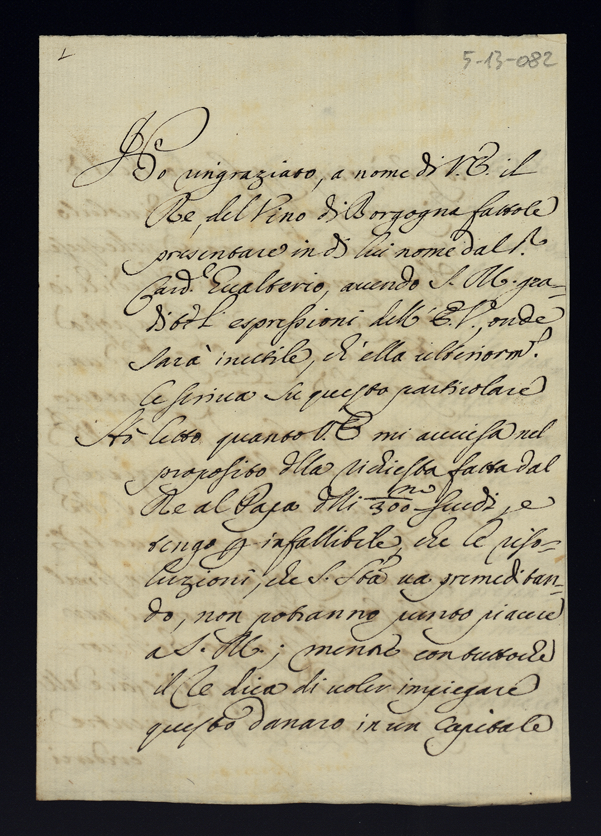 5-13-082
Ho ringraziato, a nome di V. E. il
Re, del Vino di Borgogna fattole
presentare in di lui nome dal S.r
Card.l Gualterio, avendo S. M. gra-
dito l' espressioni dell' E. V., onde
sarà inutile, ch' ella ulteriorm.e
le scriva su questo particolare
Hò letto quanto V. E. mi accusa nel
proposito della richiesta fatta dal
Re al Papa delli 300 m scudi, e
tengo p infallibile, che le riso-
luzioni, che S. S.tà va premeditan-
do, non potranno punto piacere
a S. M.; mentre con tuttoche
il Re dica di voler impiegare
questo danaro in un Capitale